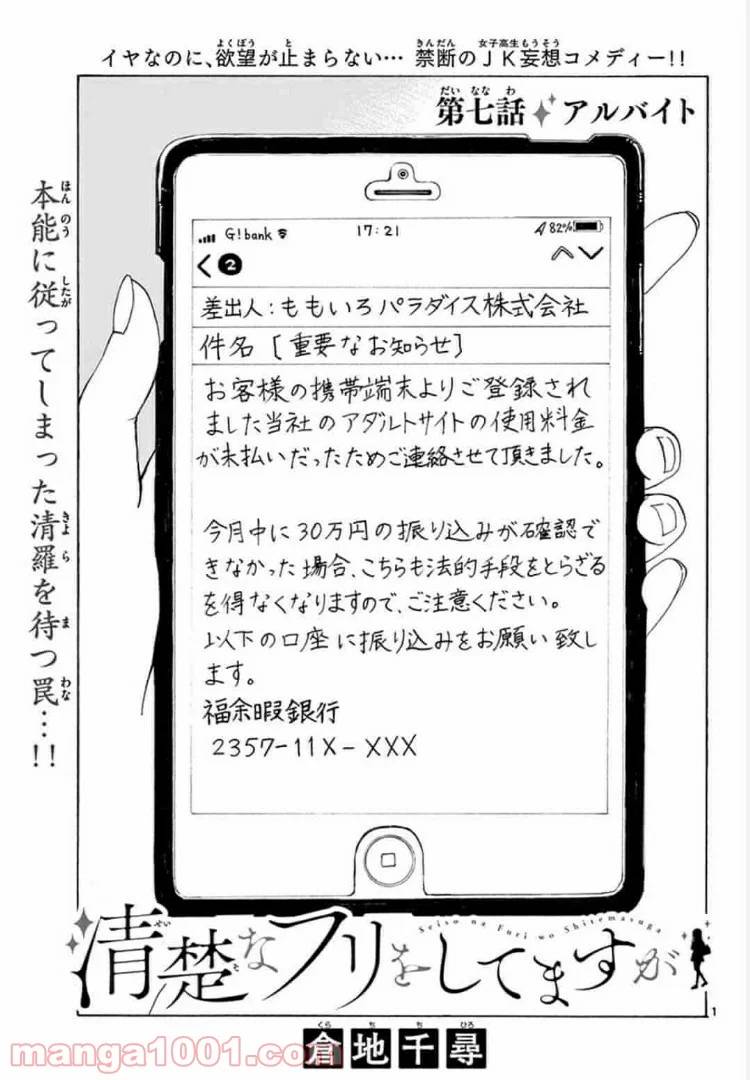 イヤなのに、欲望が止まらない… 禁断のJK妄想コメディー!!
よくぼう
と
きんだん
女子高生もうそう
第七話 アルバイト
だい なな わ
本能に従ってしまった清羅を待つ罠…!!
ほんのう
したが
きよら
ま
わな
G!bank 17:21 82%
2
差出人:ももいろパラダイス株式会社
件名 [重要なお知らせ]
お客様の携帯端末よりご登録され
ました当社のアダルトサイトの使用料金
が未払いだったためご連絡させて頂きました。
今月中に30万円の振り込みが確認で
きなかった場合、こちらも法的手段をとらざる
を得なくなりますので、ご注意ください。
以下の口座に振り込みをお願い致し
ます。
福余暇銀行
2357-11X-XXX
清楚なフリをしてますが
せいそ
Seiso na Furi wo Shitemasuga
1
倉地千尋
くら ち ち ひろ
manga1001.com